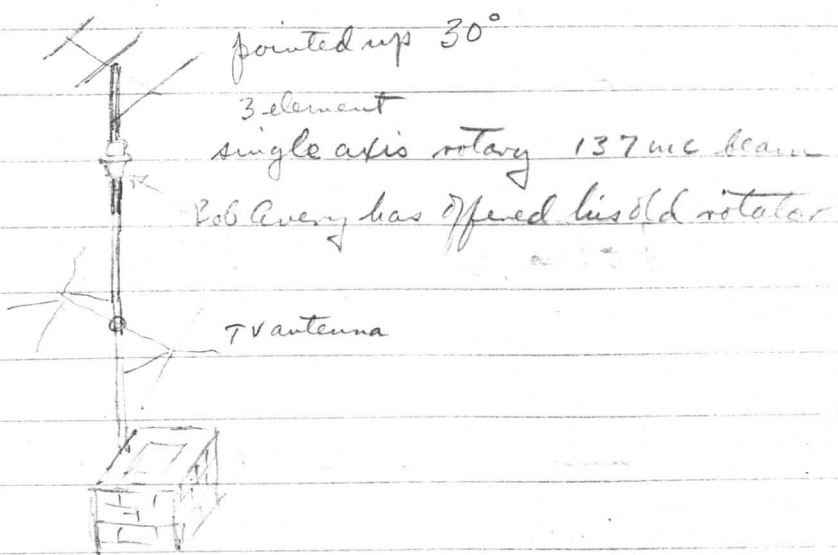 pointed up 30°
3 element
single axis rotary 137 mc beam
Bob Avery has offered his old rotator
TV antenna